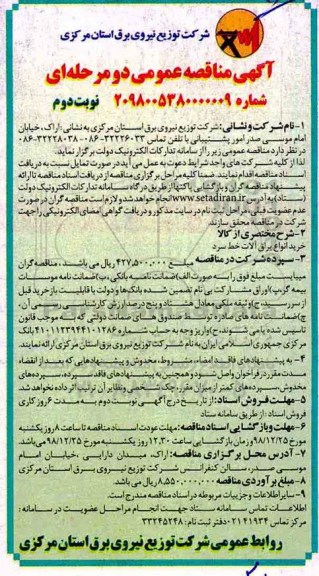 شرکت توزیع نیروی برق استان مرکزی
آگهی مناقصه عمومی دو مرحله‌ای
شماره ۲۰۹۸۰۰۵۳۸۰۰۰۰۰۰۹ نوبت دوم
۱-نام شرکت و نشانی: شرکت توزیع نیروی برق استان مرکزی به نشانی: اراک، خیابان
امام موسی صدر امور پشتیبانی با تلفن تماس ۳۲۲۲۶۰۳۳-۰۸۶ - ۳۲۲۲۸۰۳۸-۰۸۶
در نظر دارد مناقصه عمومی زیر را از سامانه تدارکات الکترونیک دولت برگزار نماید.
لذا از کلیه شرکت های واجد شرایط دعوت به عمل می آید در صورت تمایل نسبت به دریافت
اسناد مناقصه اقدام نمایند. ضمنا کلیه مراحل برگزاری مناقصه از دریافت اسناد مناقصه تا ارائه
پیشنهاد مناقصه گران و بازگشایی پاکتها از طریق درگاه سامانه تدارکات الکترونیک دولت
(ستاد) به آدرس www.setadiran.ir انجام خواهد شد و لازم است مناقصه گران در صورت
عدم عضویت قبلی، مراحل ثبت نام در سایت مذکور و دریافت گواهی امضای الکترونیکی را جهت
شرکت در مناقصه محقق سازند.
۲-شرح مختصری از کالا
خرید انواع یراق آلات خط سرد
۳-سپرده شرکت در مناقصه مبلغ ۴۲۷,۵۰۰,۰۰۰ ریال می باشد، مناقصه گران
میبایست مبلغ فوق را به صورت الف) ضمانت نامه بانکی، ب) ضمانت نامه موسسات
بیمه گر پ) اوراق مشارکت بی نام تضمین شده بانکها و دولت با قابلیت باز خرید قبل
از سررسید، ج) وثیقه ملکی معادل هشتاد و پنج درصد ارزش کارشناسی رسمی آن،
چ) ضمانت نامه های صادره از سوی صندوق های ضمانت دولتی که به موجب قانون
تاسیس شده یا می شوند، ح) واریز وجه به حساب شماره ۴۱۰۱۱۲۳۹۴۴۱۰۱۲۸۶ بانک
مرکزی جمهوری اسلامی ایران به نام شرکت توزیع نیروی برق استان مرکزی ارائه نمایند.
۴- به پیشنهادهای فاقد امضاء، مشروط، مخدوش و پیشنهادهایی که بعد از انقضاء
مدت مقرر در فراخوان واصل شود و همچنین به پیشنهادهای فاقد سپرده، سپرده‌های
مخدوش، سپرده‌های کمتر از میزان مقرر، چک شخصی و نظایر آن ترتیب اثر داده نخواهد شد.
۵-مهلت فروش اسناد: از تاریخ درج آگهی نوبت دوم به مدت ۶ روز کاری
فروش اسناد: از طریق سامانه ستاد
۶-مهلت و بازگشایی اسناد مناقصه: مهلت عودت اسناد مناقصه تا ساعت ۸ روز یکشنبه
مورخ ۹۸/۱۲/۲۵ و زمان بازگشایی ساعت ۱۲,۳۰ روز یکشنبه مورخ ۹۸/۱۲/۲۵ می باشد.
۷-آدرس محل برگزاری مناقصه: اراک، میدان دارایی، خیابان امام
موسی صدر، سالن کنفرانس شرکت توزیع نیروی برق استان مرکزی
۸-مبلغ برآوردی مناقصه ۸,۵۵۰,۰۰۰,۰۰۰ ریال می باشد.
۹-سایر اطلاعات و جزییات مربوطه در اسناد مناقصه مندرج است.
اطلاعات تماس سامانه ستاد جهت انجام مراحل عضویت در سامانه :
مرکز تماس ۴۱۹۳۴-۰۲۱ دفتر ثبت نام: ۳۳۲۴۵۲۴۸
روابط عمومی شرکت توزیع نیروی برق استان مرکزی